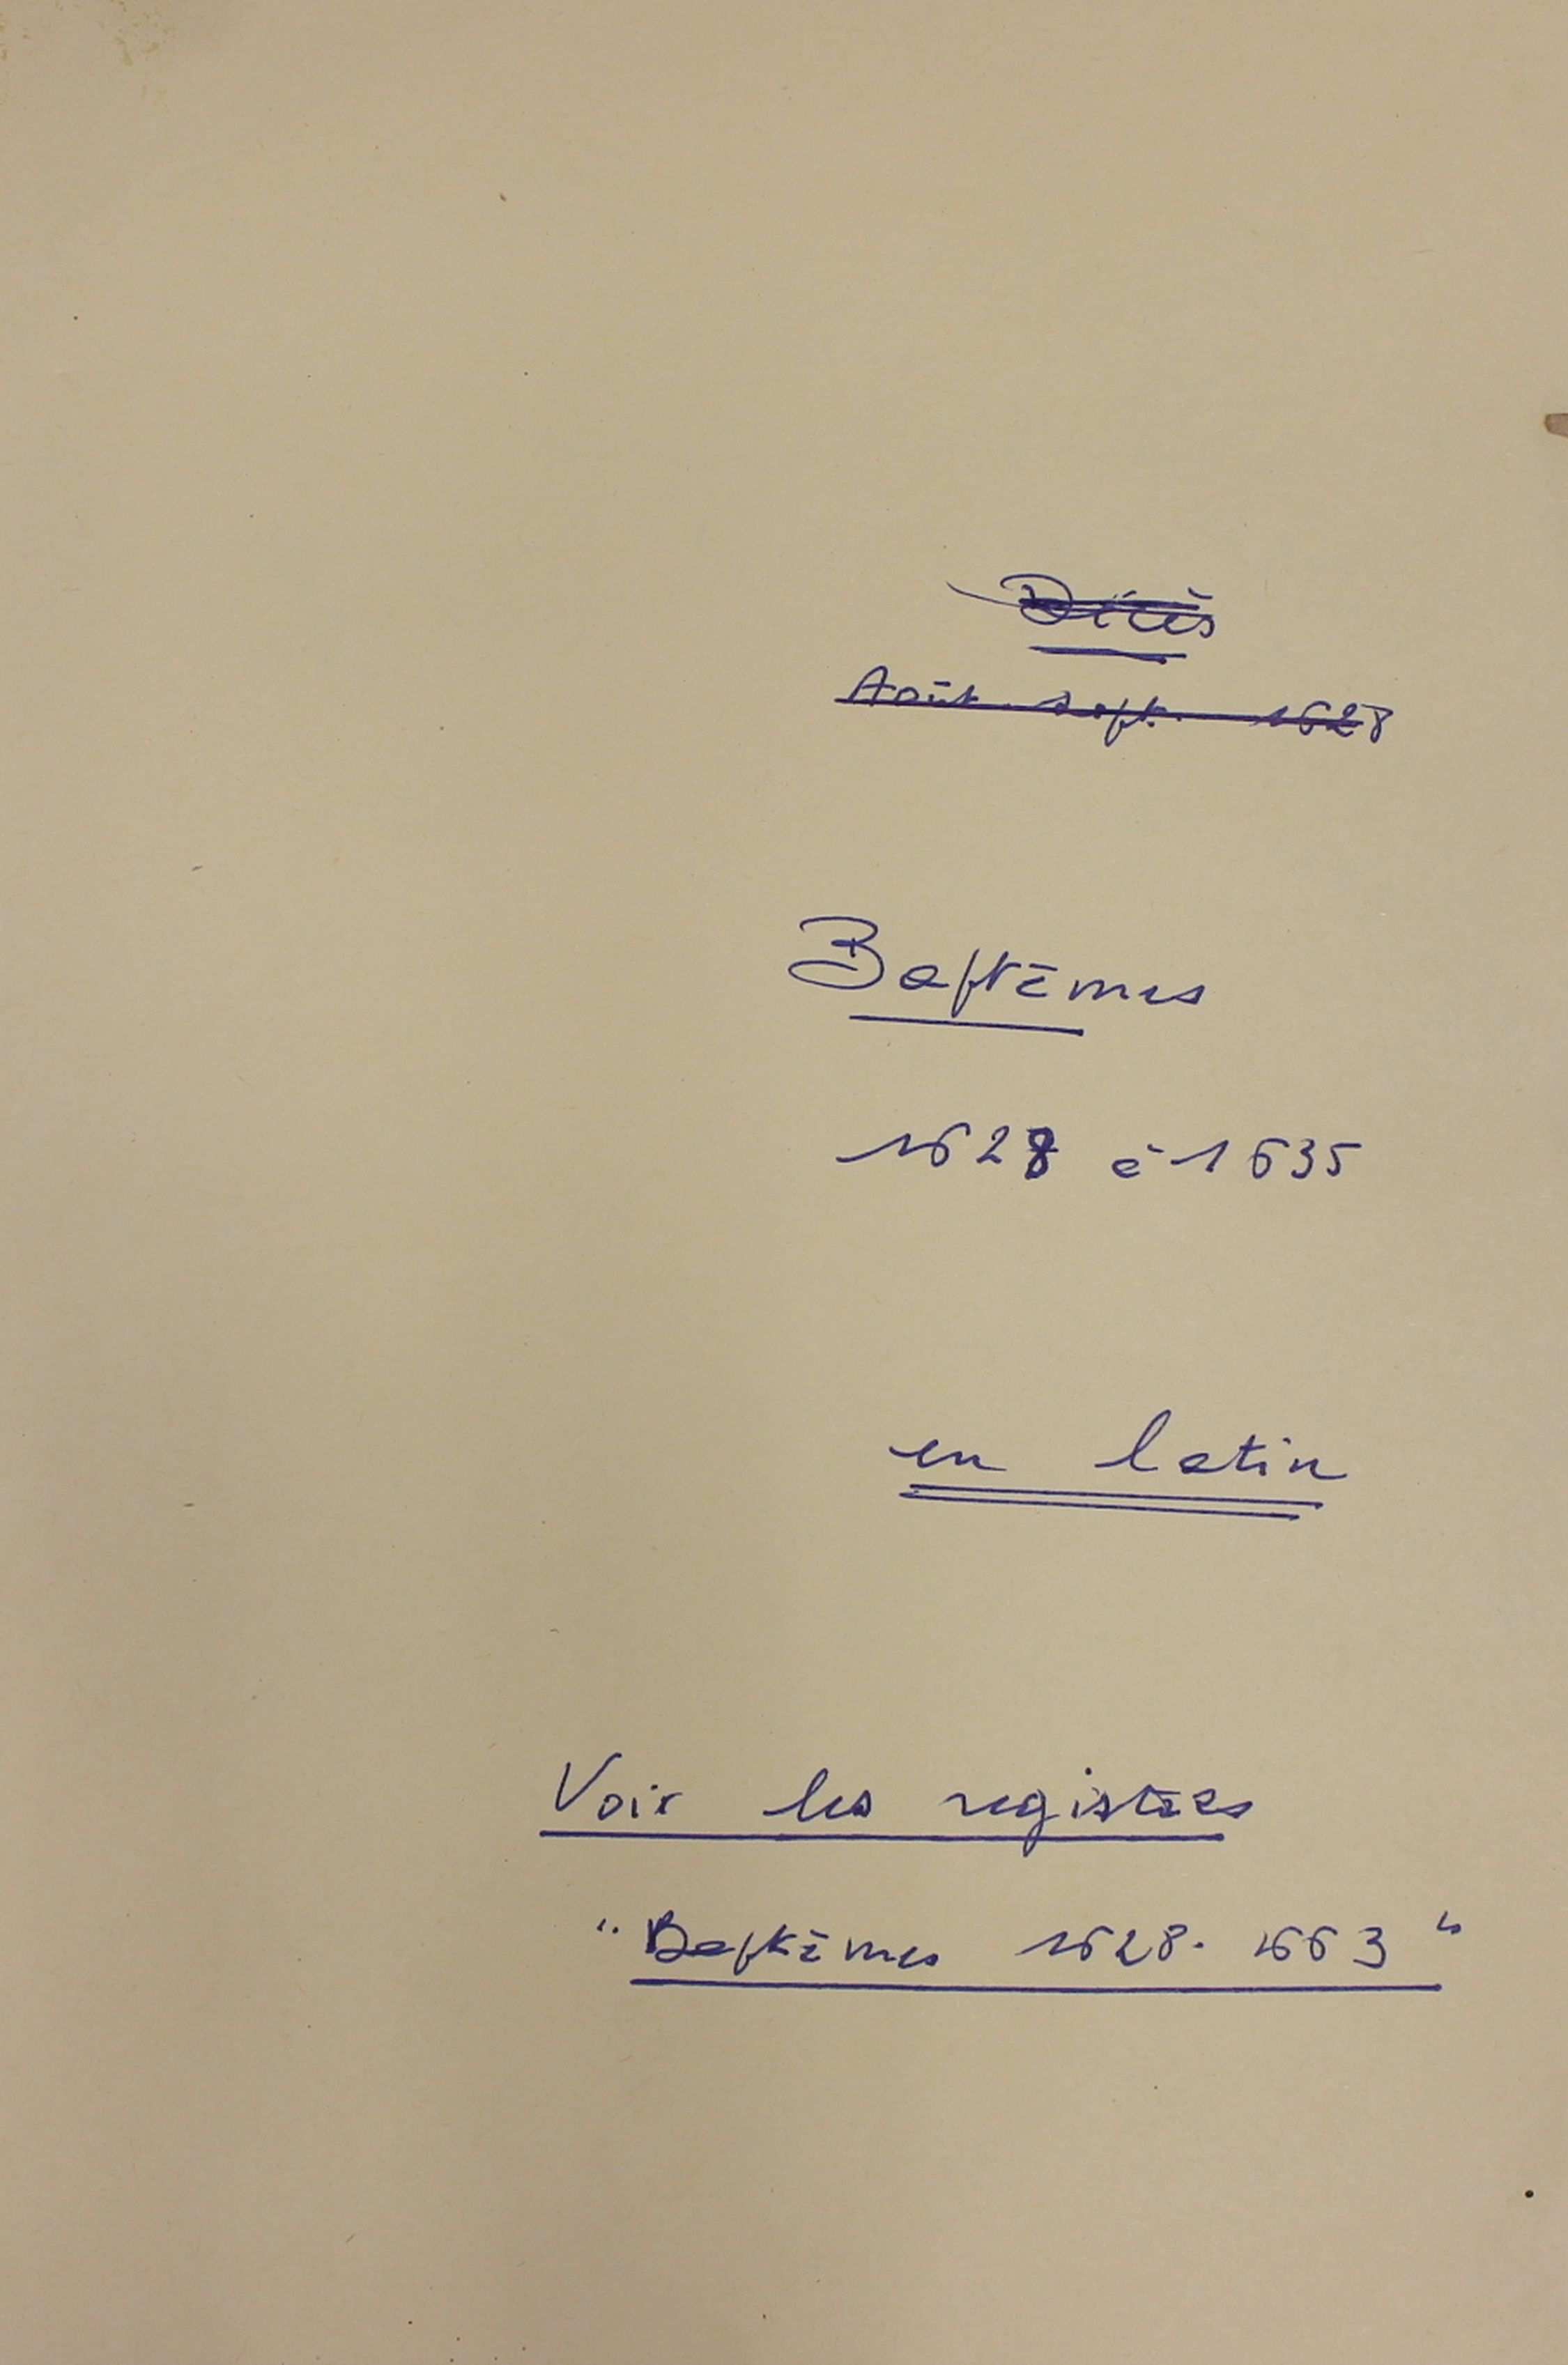 Décès
Août - Sept. 1628
Baptêmes
1628 à 1635
en latin
Voir les registres
"Baptêmes 1628-1663"